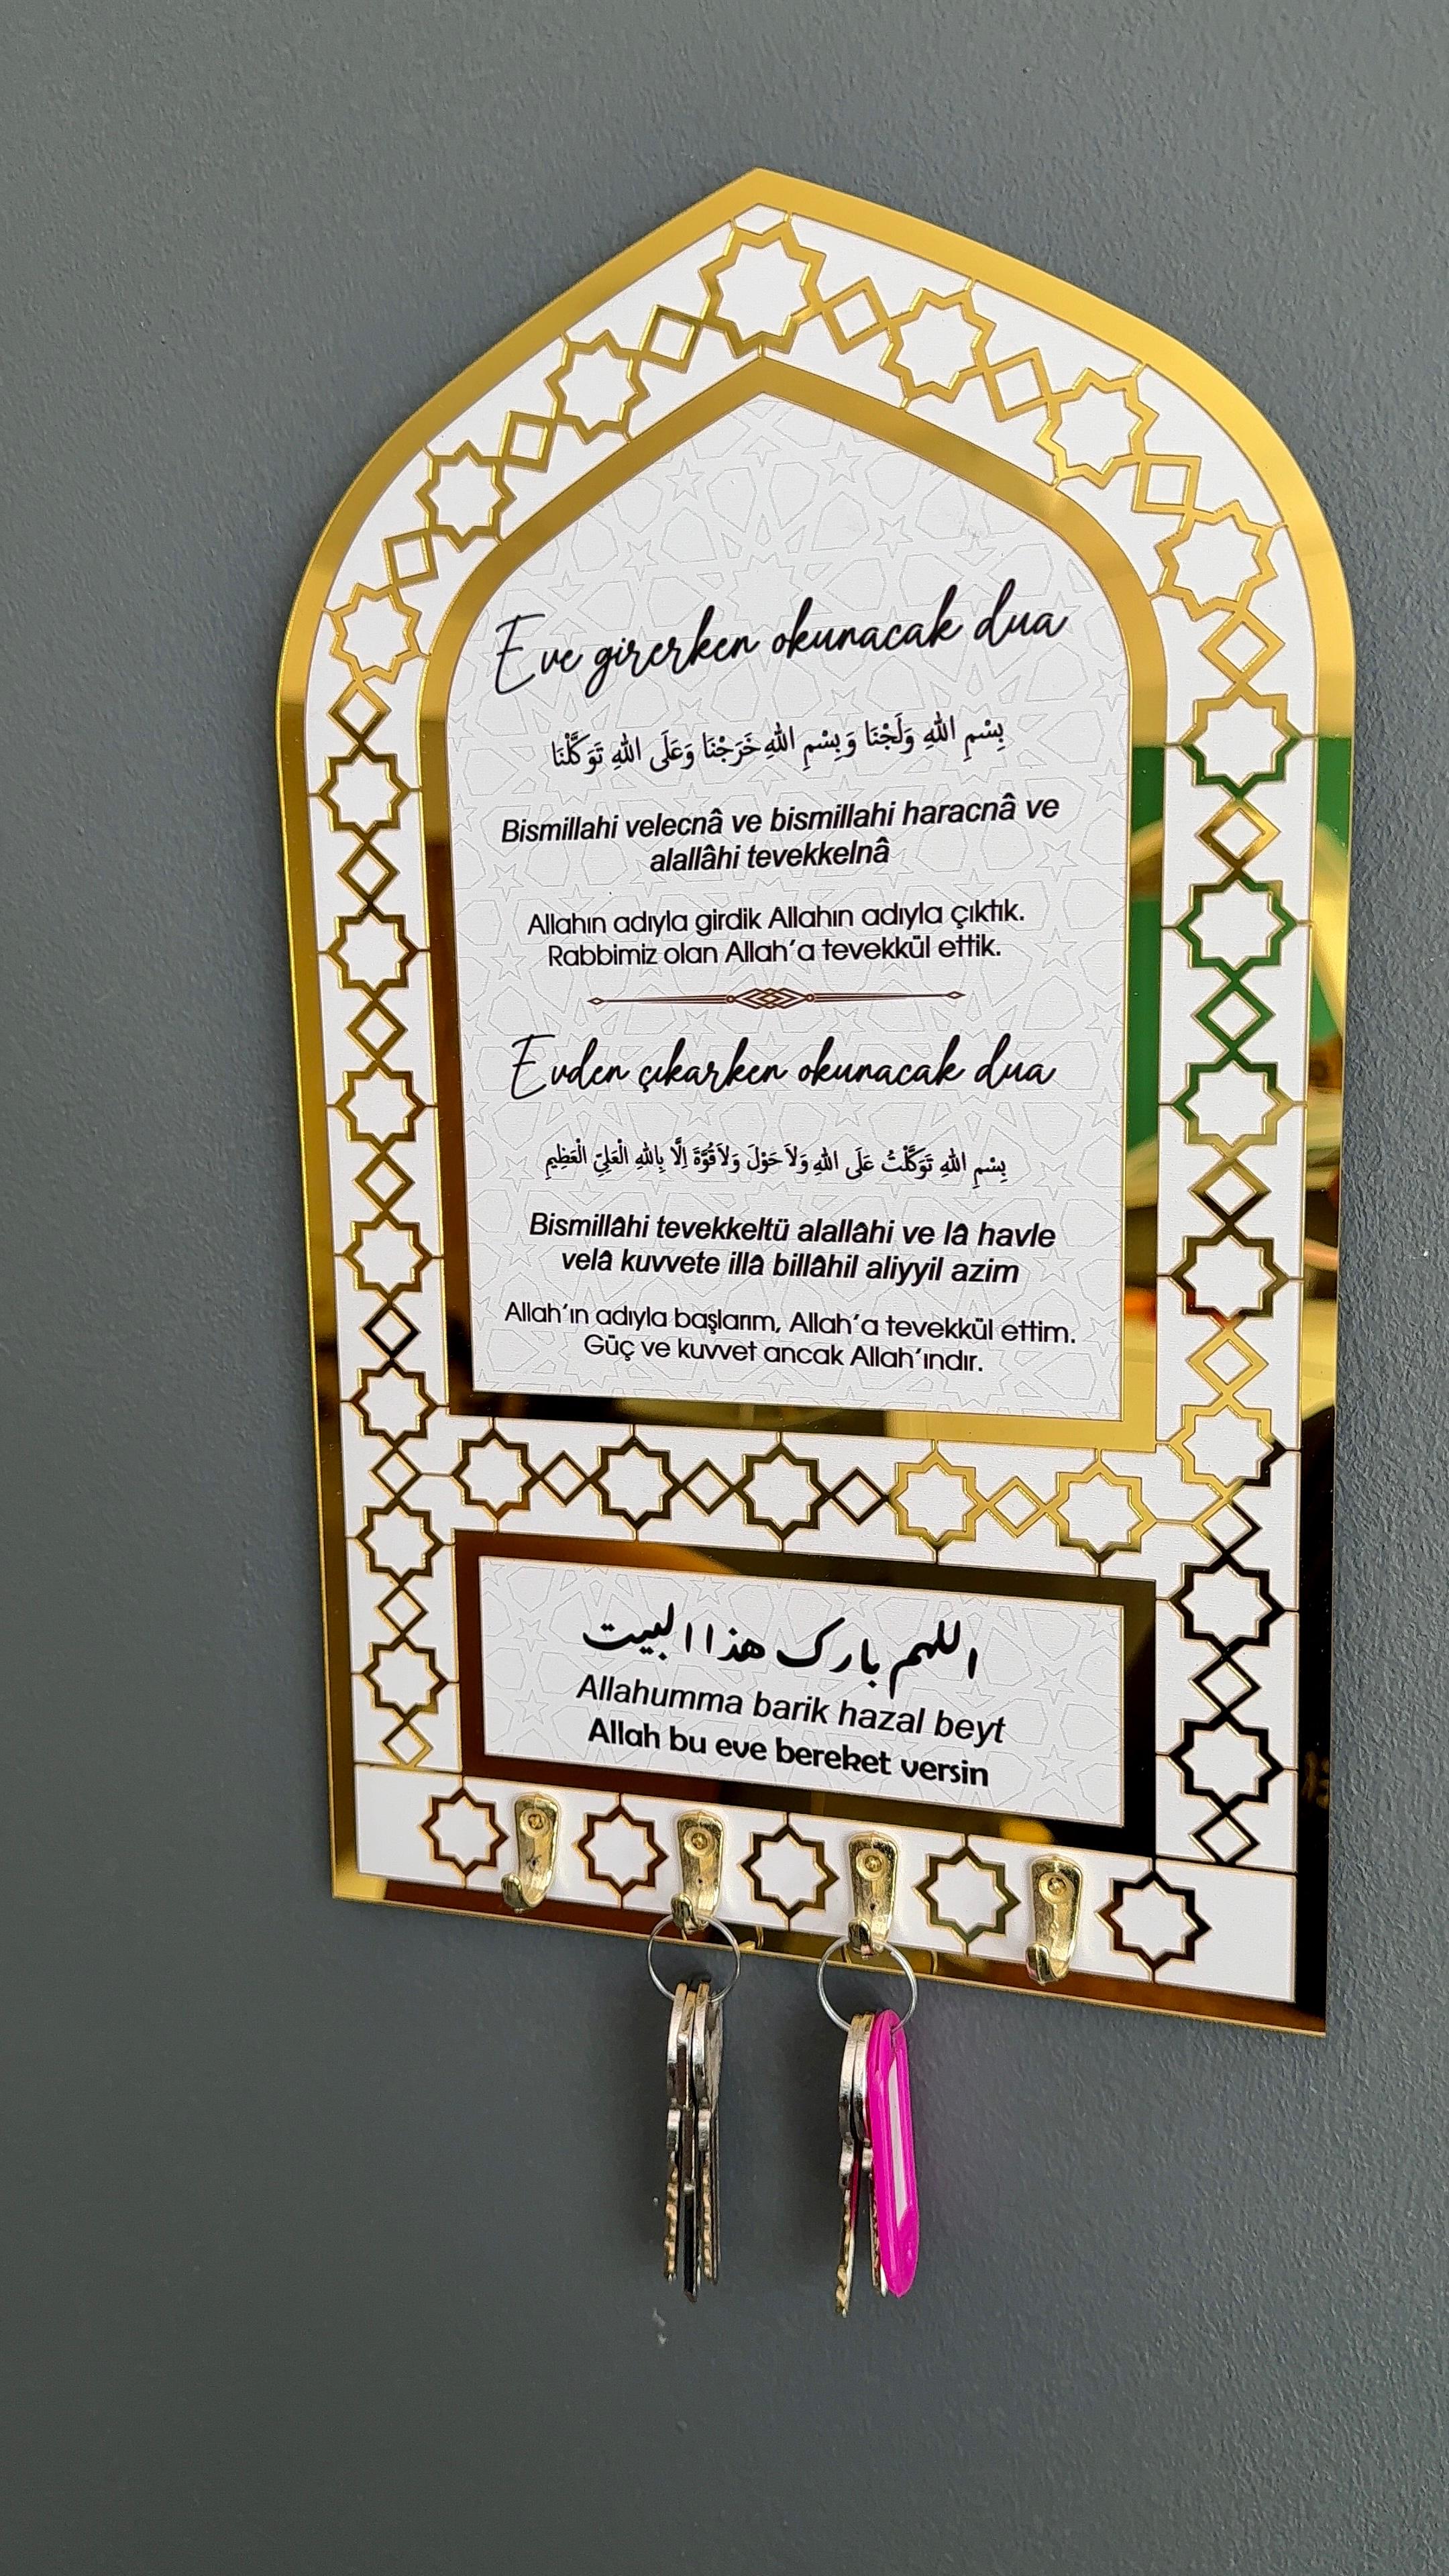 Eve girerken okunacak dua
بِسْمِ اللهِ وَلَجْنَا وَبِسْمِ اللهِ خَرَجْنَا وَعَلَى اللهِ تَوَكَّلْنَا
Bismillahi velecnâ ve bismillahi haracnâ ve
alallâhi tevekkelnâ
Allahın adıyla girdik Allahın adıyla çıktık.
Rabbimiz olan Allah'a tevekkül ettik.
Evden çıkarken okunacak dua
بِسْمِ اللهِ تَوَكَّلْتُ عَلَى اللهِ وَلاَ حَوْلَ وَلاَ قُوَّةَ اِلَّا بِاللهِ الْعَلِيّ الْعَظِيمِ
Bismillâhi tevekkeltü alallâhi ve lâ havle
velâ kuvvete illâ billâhil aliyyil azim
Allah'ın adıyla başlarım, Allah'a tevekkül ettim.
Güç ve kuvvet ancak Allah'ındır.
اللهم بارك هذا البيت
Allahumma barik hazal beyt
Allah bu eve bereket versin